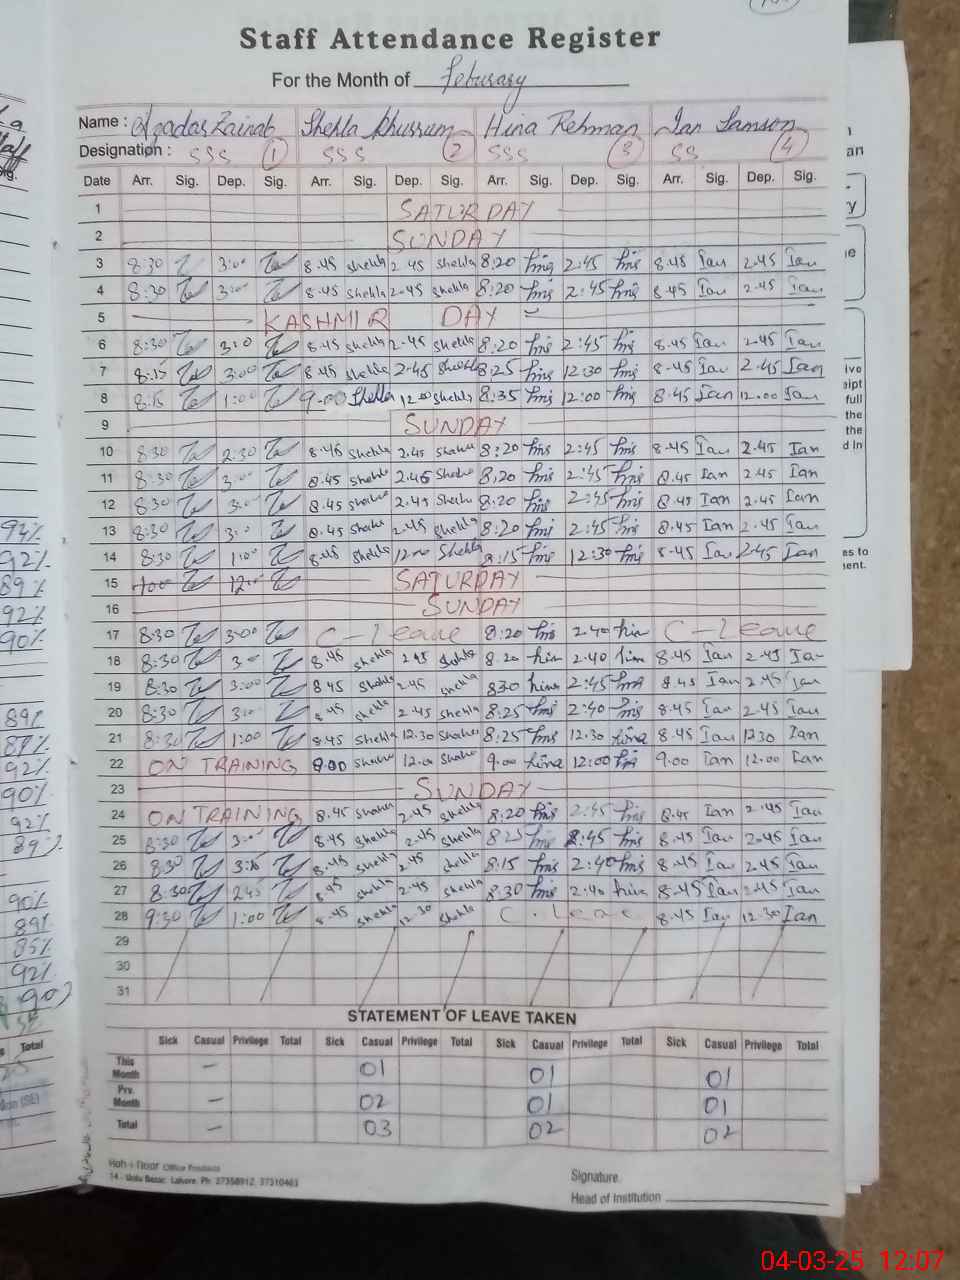 Staff Attendance Register
For the Month of Feburary
Name : Zainab Shehla Khussum Hina Rehman Ian Samson
Designation : SSS 1 SSS 2 SSS 3 SS 4
Date Arr. Sig. Dep. Sig. Arr. Sig. Dep. Sig. Arr. Sig. Dep. Sig. Arr. Sig. Dep. Sig.
1 SATURDAY
2 SUNDAY
3 8:30 3:00 8.45 Shehla 2.45 Shehla 8:20 2:45 8.45 Ian 2.45 Ian
4 8:30 3:00 8.45 Shehla 2.45 Shehla 8:20 2:45 8.45 Ian 2.45 Ian
5 KASHMIR DAY
6 8:30 3:00 8.45 Shehla 2.45 Shehla 8:20 2:45 8.45 Ian 2.45 Ian
7 8:15 3:00 8.45 Shehla 2.45 Shehla 8:25 12:30 8.45 Ian 2.45 Ian
8 8:15 1:00 9.00 Shehla 12.00 Shehla 8:35 12:00 8.45 Ian 12.00 Ian
9 SUNDAY
10 8:30 2:30 8.45 Shehla 2.45 Shehla 8:20 2:45 8.45 Ian 2.45 Ian
11 8:30 3:00 8.45 Shehla 2.45 Shehla 8:20 2:45 8.45 Ian 2.45 Ian
12 8:30 3:00 8.45 Shehla 2.45 Shehla 8:20 2:45 8.45 Ian 2.45 Ian
13 8:30 3:00 8.45 Shehla 2.45 Shehla 8:20 2:45 8.45 Ian 2.45 Ian
14 8:30 1:00 8.45 Shehla 12.00 Shehla 8:15 12:30 8.45 Ian 2.45 Ian
15 12:00 SATURDAY
16 SUNDAY
17 8:30 3:00 C-Leave 8:20 2.40 C-Leave
18 8:30 3:00 8.45 Shehla 2.45 Shehla 8.20 2.40 8.45 Ian 2.45 Ian
19 8:30 3:00 8.45 Shehla 2.45 Shehla 830 2:45 8.45 Ian 2.45 Ian
20 8:30 3:00 8.45 Shehla 2.45 Shehla 8:25 2:40 8.45 Ian 2.45 Ian
21 8:30 1:00 8.45 Shehla 12.30 Shehla 8:25 12.30 hina 8.45 Ian 1230 Ian
22 ON TRAINING 9.00 Shehla 12.00 Shehla 9.00 hina 12:00 9.00 Ian 12.00 Ian
23 SUNDAY
24 ON TRAINING 8.45 Shehla 2.45 Shehla 8:20 2:45 8.45 Ian 2.45 Ian
25 8:30 3:00 8.45 Shehla 2.45 Shehla 8:25 2:45 8.45 Ian 2.45 Ian
26 8:30 8.45 Shehla 2.45 Shehla 8:15 2:40 8.45 Ian 2.45 Ian
27 8:30 2:45 8.45 Shehla 2.45 Shehla 8:30 2:40 hina 8.45 Ian 2.45 Ian
28 9:30 1:00 8.45 Shehla 12.30 Shehla C.Leave 8.45 Ian 12.30 Ian
29
30
31
STATEMENT OF LEAVE TAKEN
Sick Casual Privilege Total Sick Casual Privilege Total Sick Casual Privilege Total Sick Casual Privilege Total
This Month – 01 01 01
Prv. Month – 02 01 01
Total – 03 02 02
Roh-i-Noor Office Products
14 - Urdu Bazar, Lahore. Ph: 37358912, 37310463
Signature.
Head of Institution
94%
92%
89%
92%
90%
89%
89%
92%
90%
92%
89%
90%
89%
85%
92%
90
Total
an
y
ne
ive
eipt
full
the
the
d in
es to
ent.
04-03-25 12:07